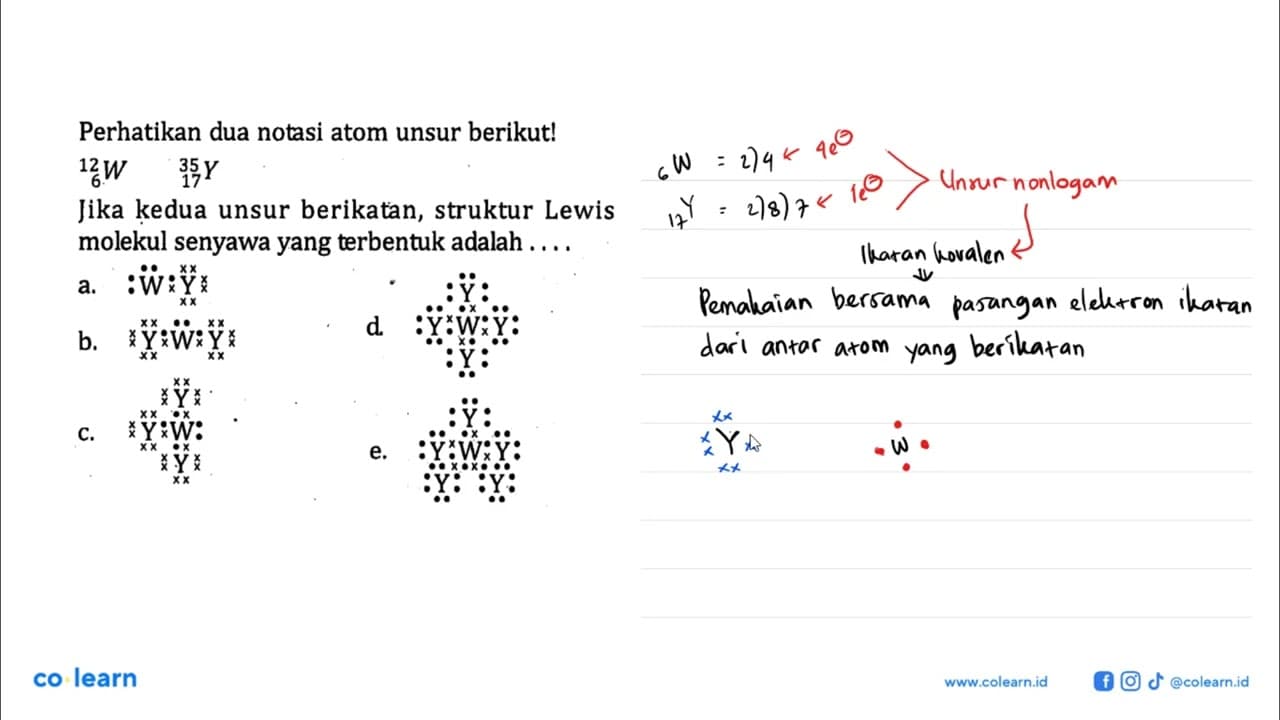 Perhatikan dua notasi atom unsur berikut!
¹²₆W ³⁵₁₇Y
Jika kedua unsur berikatan, struktur Lewis
molekul senyawa yang terbentuk adalah . . . .
a. W Y
b. Y W Y
c. Y
Y W
Y
d. Y
Y W Y
Y
e. Y
Y W Y
Y Y
₆W = 2)4 ← 4e⊖
₁₇Y = 2)8)7 ← 1e⊖
Unsur nonlogam
Ikatan kovalen
Pemakaian bersama pasangan elektron ikatan
dari antar atom yang berikatan
Y W
co learn
www.colearn.id @colearn.id